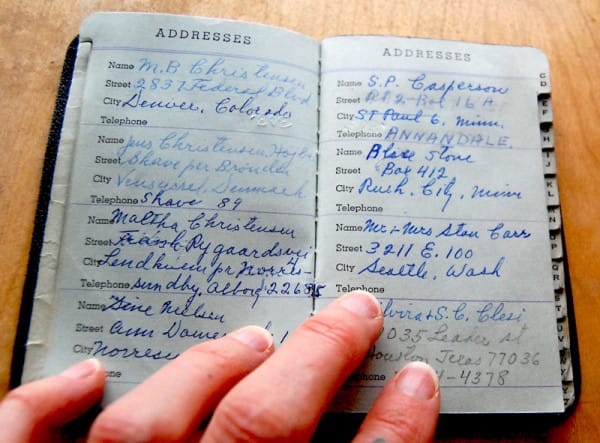 ADDRESSES
Name M.B. Christensen
Street 2837 Federal Blvd
City Denver, Colorado
Telephone
Name Jens Christensen, Hojbo
Street Skave per Bronden
City Vensyssel, Denmark
Telephone Skave 89
Name Maltha Christensen
Street Frank Rygaardsvej
City Lendholm pr Norres-
Telephone sundby, Alborg 22685
Name Sine Nielsen
Street Ann Dame
City Norres
ADDRESSES
Name S.P. Casperson
Street Rt 2 - Box 16 A
City St Paul 6. Minn.
Telephone ANNANDALE.
Name Blose Stone
Street Box 412
City Rush, City, Minn
Telephone
Name Mr. & Mrs Stan Carr
Street 3211 E. 100
City Seattle, Wash
Telephone
lvira & S.C. Clesi
035 Leader st
Houston Texas 77036
phone 4-4378
CD
EF
KL